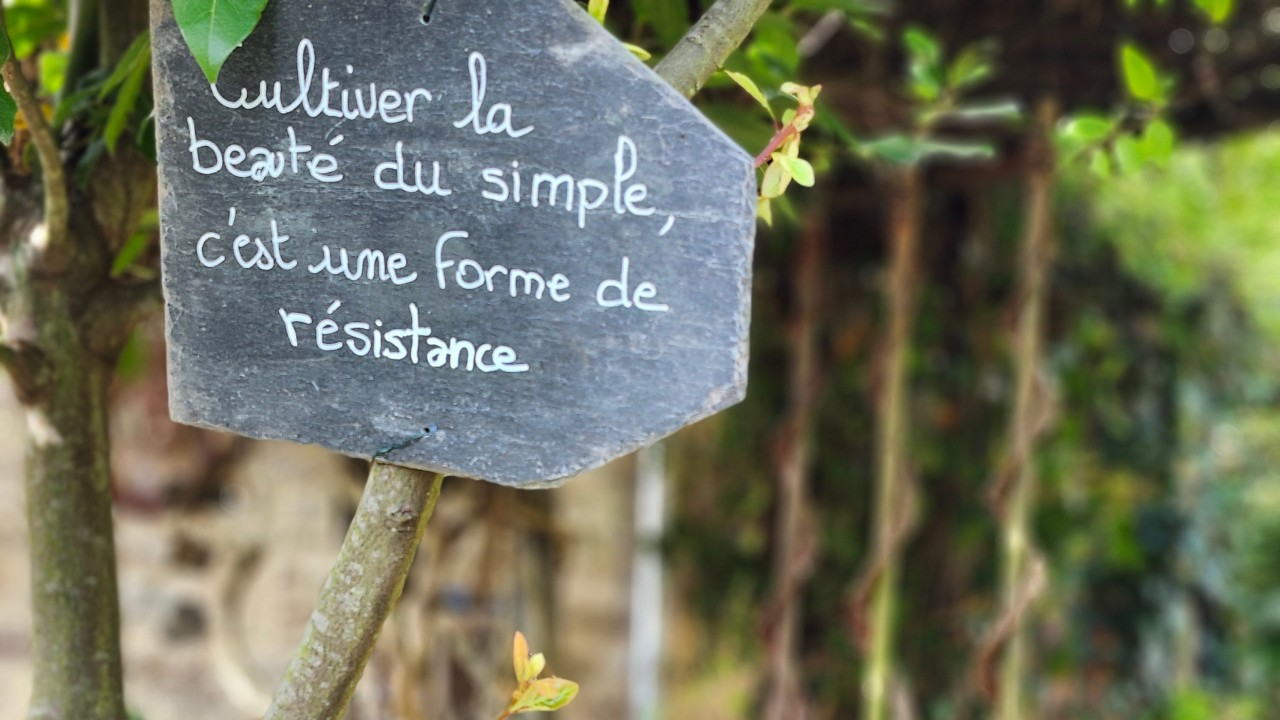 Cultiver la
beauté du simple,
c'est une forme de
résistance